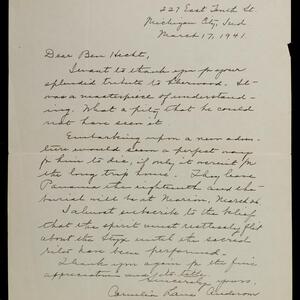 227 East Tenth St.
Michigan City, Ind
March 17, 1941.
Dear Ben Hecht,
I want to thank you for your
splendid tribute to Sherwood. It
was a masterpiece of understand-
ing. What a pity that he could
not have seen it.
Embarking upon a new adven-
ture would seem a perfect way
for him to die, if only it weren't for
the long trip home. They leave
Panama the eighteenth and the
burial will be at Marion, March 26.
I almost subscribe to the belief
that the spirit must restlessly flit
about the Styx until the sacred
rites have been performed.
Thank you again for the fine
appreciation and
Sincerely yours,
Cornelia Lane Anderson